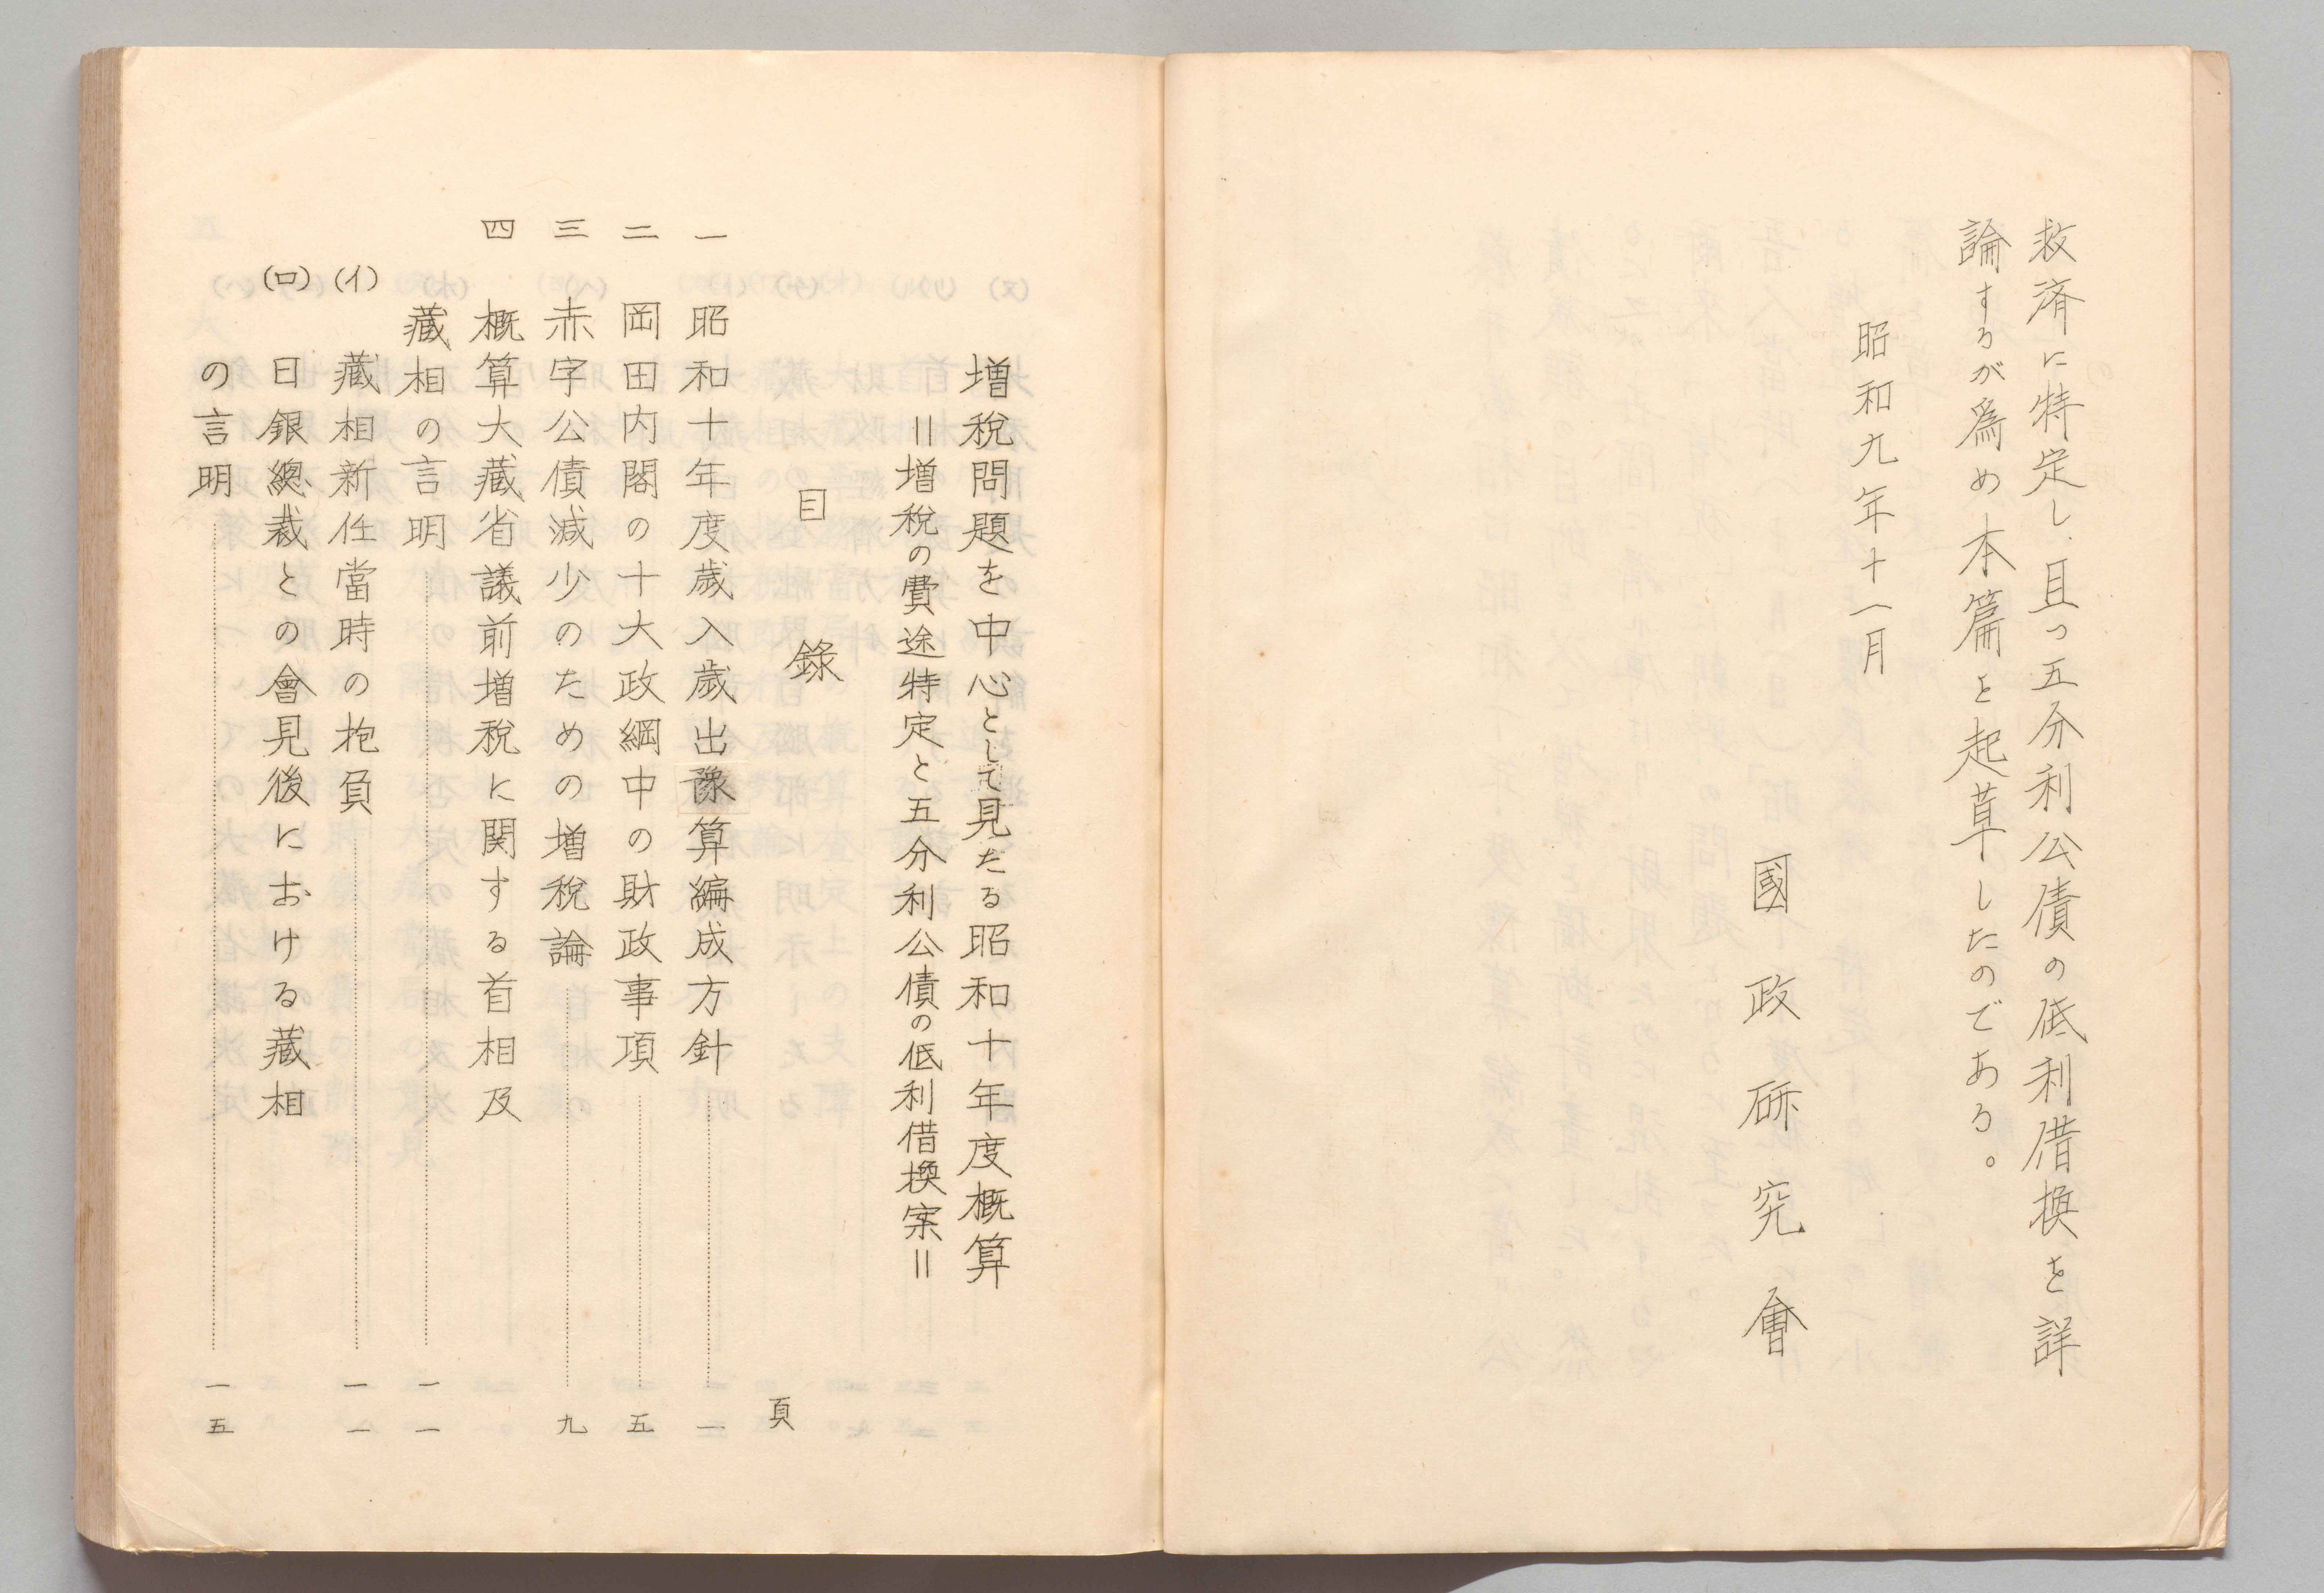 救済に特定し、且つ五分利公債の低利借換を詳
論するが爲め本篇を起草したのである。
昭和九年十一月
國政研究會
増税問題を中心として見たる昭和十年度概算
＝増税の費途特定と五分利公債の低利借換案＝
目錄
頁
一 昭和十年度歲入歲出豫算編成方針……一
二 岡田内閣の十大政綱中の財政事項……五
三 赤字公債減少のための増税論……九
四 概算大藏省議前増税に関する首相及
藏相の言明……一一
(イ) 藏相新任當時の抱負……一一
(ロ) 日銀總裁との會見後における藏相
の言明……一五